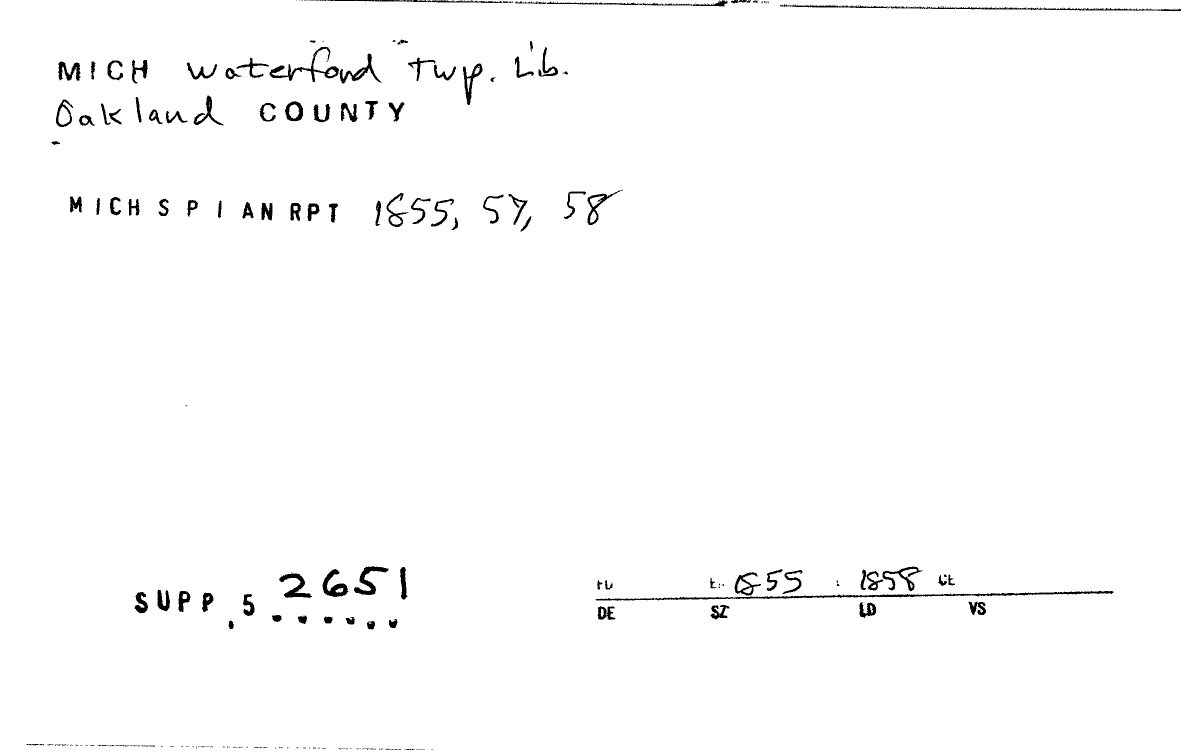 MICH Waterford Twp. Lib.
Oakland COUNTY
MICH S P I AN RPT 1855, 57, 58
SUPP. 5 2651
1855 : 1858
DE SZ LD VS